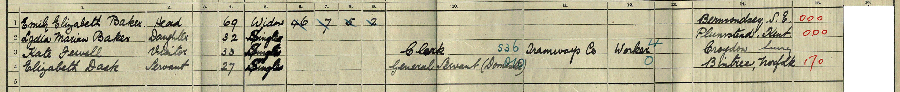 1 Emily Elizabeth Baker Head 69 Widow 46 7 5 2 Bermondsey, S.E. 000
2 Lydia Marian Baker Daughter 32 Single Plumstead, Kent 000
3 Kate Jewell Visitor 33 Single Clerk 536 Tramways Co Worker 4 Croydon Surrey
4 Elizabeth Dack Servant 27 Single General Servant (Domestic) 0 Bintree, Norfolk 170
5